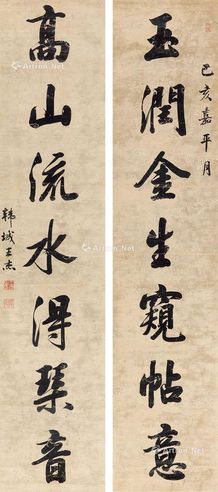 己亥嘉平月
玉潤金生窺帖意
高山流水得琹音
韓城王杰